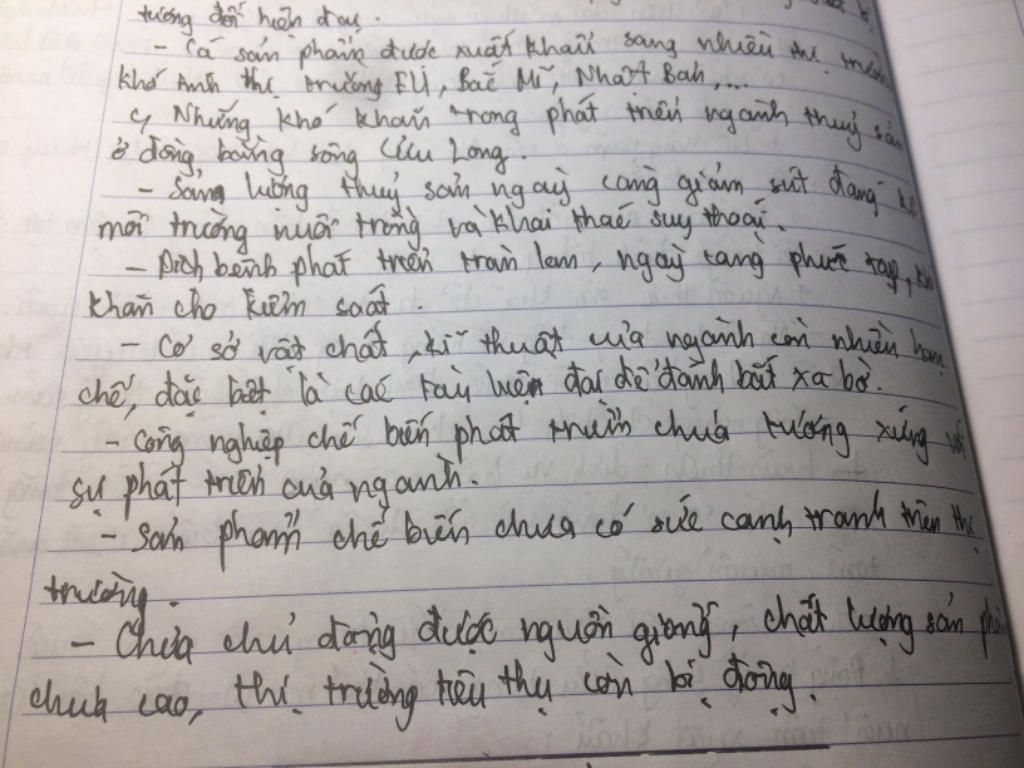 tương đối hiện đại
- Cá sản phẩm được xuất khẩu sang nhiều thị trường
khó tính thị trường EU, Bắc Mĩ, Nhật Bản,...
c, Những khó khăn trong phát triển ngành thuỷ sản
ở đồng bằng sông Cửu Long.
- Sản lượng thuỷ sản ngày càng giảm sút đáng kể
môi trường nuôi trồng và khai thác suy thoái.
- Dịch bệnh phát triển tràn lan, ngày càng phức tạp, khó
khăn cho kiểm soát.
- Cơ sở vật chất, kĩ thuật của ngành còn nhiều hạn
chế, đặc biệt là các tàu hiện đại để đánh bắt xa bờ.
- Công nghiệp chế biến phát triển chưa tương xứng với
sự phát triển của ngành.
- Sản phẩm chế biến chưa có sức cạnh tranh trên thị
trường.
- Chưa chủ động được nguồn giống, chất lượng sản phẩm
chưa cao, thị trường tiêu thụ còn bị động.